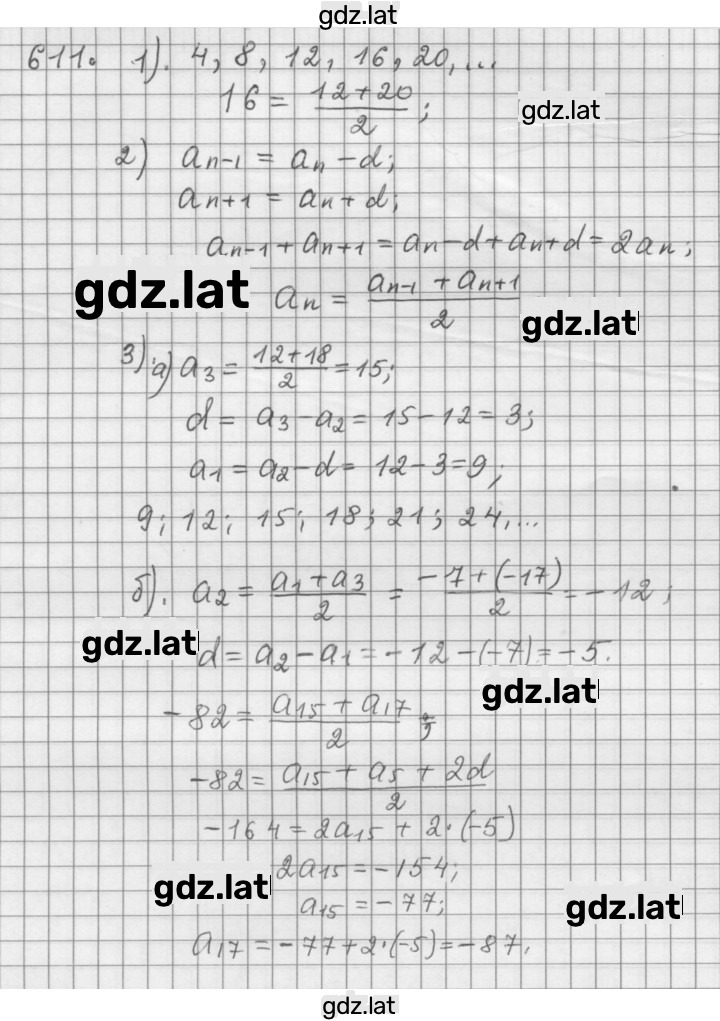 gdz.lat
611. 1). 4, 8, 12, 16, 20, ...
16 = (12+20)/2;
gdz.lat
2) aₙ₋₁ = aₙ - d;
aₙ₊₁ = aₙ + d;
aₙ₋₁ + aₙ₊₁ = aₙ - d + aₙ + d = 2aₙ;
gdz.lat
aₙ = (aₙ₋₁ + aₙ₊₁)/2
gdz.lat
3) а) a₃ = (12+18)/2 = 15;
d = a₃ - a₂ = 15 - 12 = 3;
a₁ = a₂ - d = 12 - 3 = 9;
9; 12; 15; 18; 21; 24, ...
б). a₂ = (a₁ + a₃)/2 = (-7 + (-17))/2 = -12;
gdz.lat
d = a₂ - a₁ = -12 - (-7) = -5.
gdz.lat
-82 = (a₁₅ + a₁₇)/2;
-82 = (a₁₅ + a₅ + 2d)/2
-164 = 2a₁₅ + 2·(-5)
2a₁₅ = -154;
gdz.lat
a₁₅ = -77;
gdz.lat
a₁₇ = -77 + 2·(-5) = -87.
gdz.lat